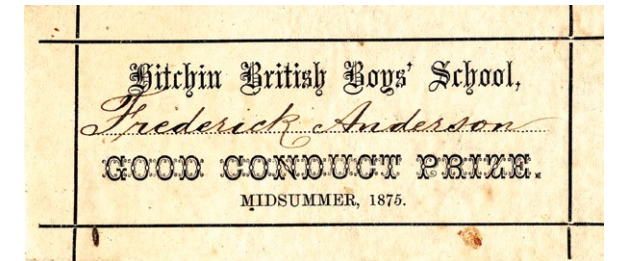 Hitchin British Boys' School,
Frederick Anderson
GOOD CONDUCT PRIZE.
MIDSUMMER, 1875.